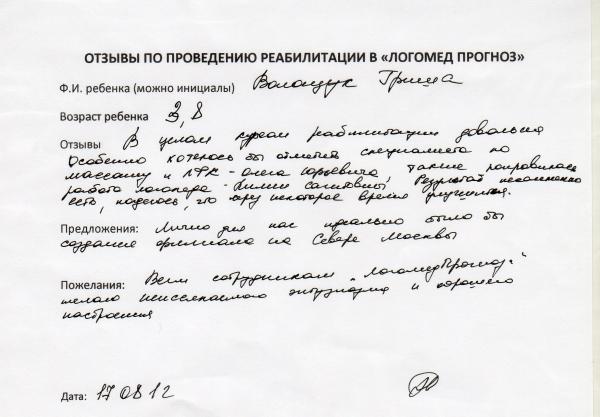 ОТЗЫВЫ ПО ПРОВЕДЕНИЮ РЕАБИЛИТАЦИИ В «ЛОГОМЕД ПРОГНОЗ»
Ф.И. ребенка (можно инициалы) Волощук Гриша
Возраст ребенка 3,8
Отзывы В целом курсом реабилитации довольна
Особенно хотелось бы отметить специалиста по
массажу и ЛФК - Олега Юрьевича, также понравилась
работа логопеда - Лилии Саитовны. Результат несомненно
есть, надеюсь, что через некоторое время улучшится.
Предложения: Лично для нас идеально было бы
создание филиала на Севере Москвы
Пожелания: Всем сотрудникам „ЛогомедПрогноз"
желаю неиссякаемого энтузиазма и хорошего
настроения
Дата: 17 08 12